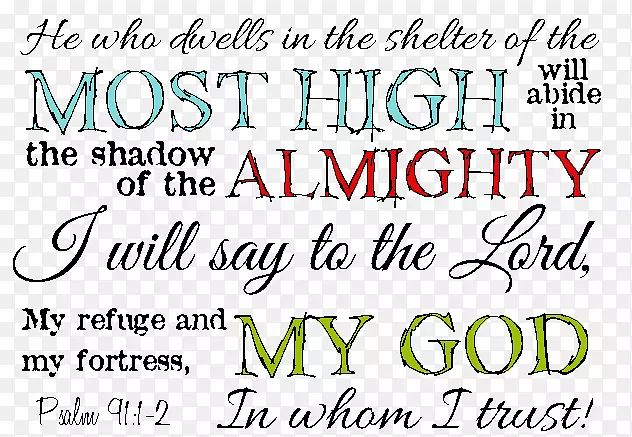 He who dwells in the shelter of the
MOST HIGH will abide in
the shadow of the ALMIGHTY
I will say to the Lord,
My refuge and my fortress, MY GOD
In whom I trust!
Psalm 91:1-2